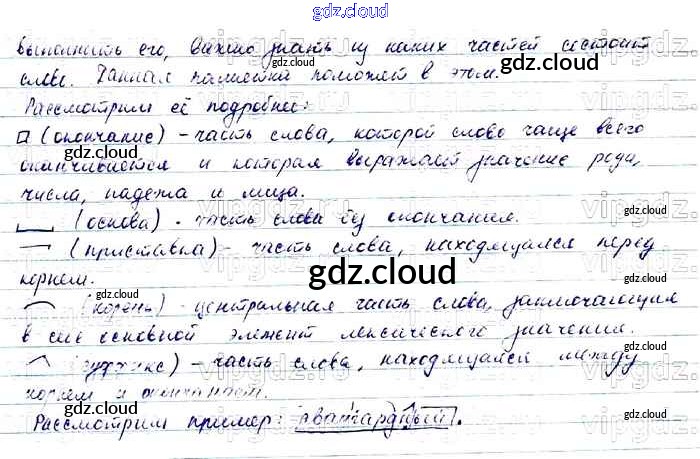 gdz.cloud
выполнить его, важно знать из каких частей состоит
слово. Данная памятка поможет в этом.
Рассмотрим её подробнее:
(окончание) – часть слова, которой слово чаще всего
оканчивается и которая выражает значение рода,
числа, падежа и лица.
(основа) - часть слова без окончания.
(приставка) – часть слова, находящаяся перед
корнем.
gdz.cloud
(корень) - центральная часть слова, заключающая
в себе основной элемент лексического значения.
(суффикс) – часть слова, находящаяся между
корнем и окончанием.
Рассмотрим пример: авангардный.